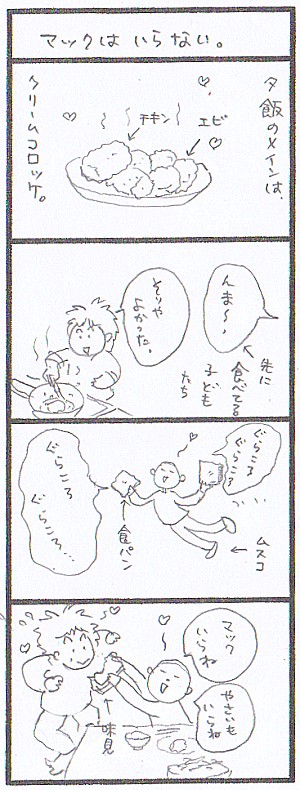 マックは いらない。
夕飯のメインは、
エビ
チキン
クリームコロッケ。
んま〜、
先に
食べてる
子ども
たち
そりゃ
よかった。
ぐらころ
ぐらころ
ムスコ
食パン
ぐらころ
ぐらころ…
マック
いらね
やさいも
いらね
味見